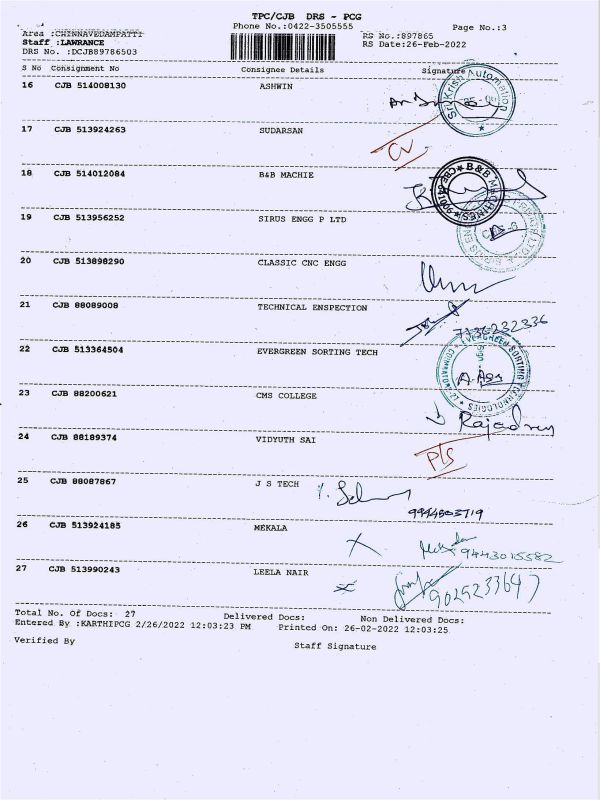 TPC/CJB DRS - PCG
Phone No.:0422-3505555
Page No.:3
Area :CHINNAVEDAMPATTI
Staff :LAWRANCE
DRS No. :DCJB89786503
RS No.:897865
RS Date:26-Feb-2022
S No Consignment No Consignee Details Signature
16 CJB 514008130 ASHWIN
Sri Krish Automation
17 CJB 513924263 SUDARSAN
18 CJB 514012084 B&B MACHIE
B&B MACHINES
19 CJB 513956252 SIRUS ENGG P LTD
20 CJB 513898290 CLASSIC CNC ENGG
21 CJB 88089008 TECHNICAL ENSPECTION
22 CJB 513364504 EVERGREEN SORTING TECH
EVERGREEN SORTING TECHNOLOGIES
23 CJB 88200621 CMS COLLEGE
24 CJB 88189374 VIDYUTH SAI
25 CJB 88087867 J S TECH
9944803719
26 CJB 513924185 MEKALA
9443015582
27 CJB 513990243 LEELA NAIR
9025233647
Total No. Of Docs: 27 Delivered Docs: Non Delivered Docs:
Entered By :KARTHIPCG 2/26/2022 12:03:23 PM Printed On: 26-02-2022 12:03:25
Verified By Staff Signature